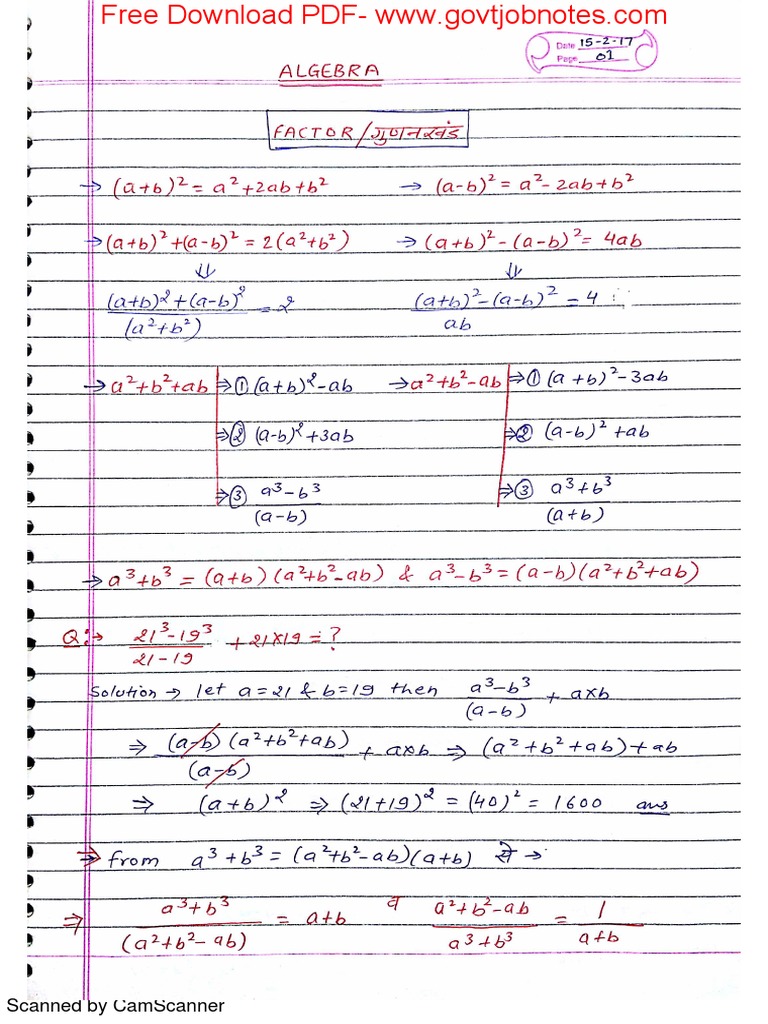 Free Download PDF- www.govtjobnotes.com
Date 15-2-17
Page 01
ALGEBRA
FACTOR/गुणनखंड
→ (a+b)² = a²+2ab+b² → (a-b)² = a²-2ab+b²
→ (a+b)²+(a-b)² = 2(a²+b²) → (a+b)²-(a-b)² = 4ab
⇓ ⇓
(a+b)²+(a-b)²/(a²+b²) = 2 (a+b)²-(a-b)²/ab = 4
→ a²+b²+ab ⇒ ① (a+b)²-ab → a²+b²-ab ⇒ ① (a+b)²-3ab
⇒ ② (a-b)²+3ab ⇒ ② (a-b)²+ab
⇒ ③ a³-b³/(a-b) ⇒ ③ a³+b³/(a+b)
→ a³+b³ = (a+b)(a²+b²-ab) & a³-b³ = (a-b)(a²+b²+ab)
Q:→ 21³-19³/21-19 + 21×19 = ?
Solution → let a=21 & b=19 then a³-b³/(a-b) + a×b
⇒ (a-b)(a²+b²+ab)/(a-b) + a×b ⇒ (a²+b²+ab)+ab
⇒ (a+b)² ⇒ (21+19)² = (40)² = 1600 ans
⇒ from a³+b³ = (a²+b²-ab)(a+b) से →
⇒ a³+b³/(a²+b²-ab) = a+b व a²+b²-ab/a³+b³ = 1/a+b
Scanned by CamScanner